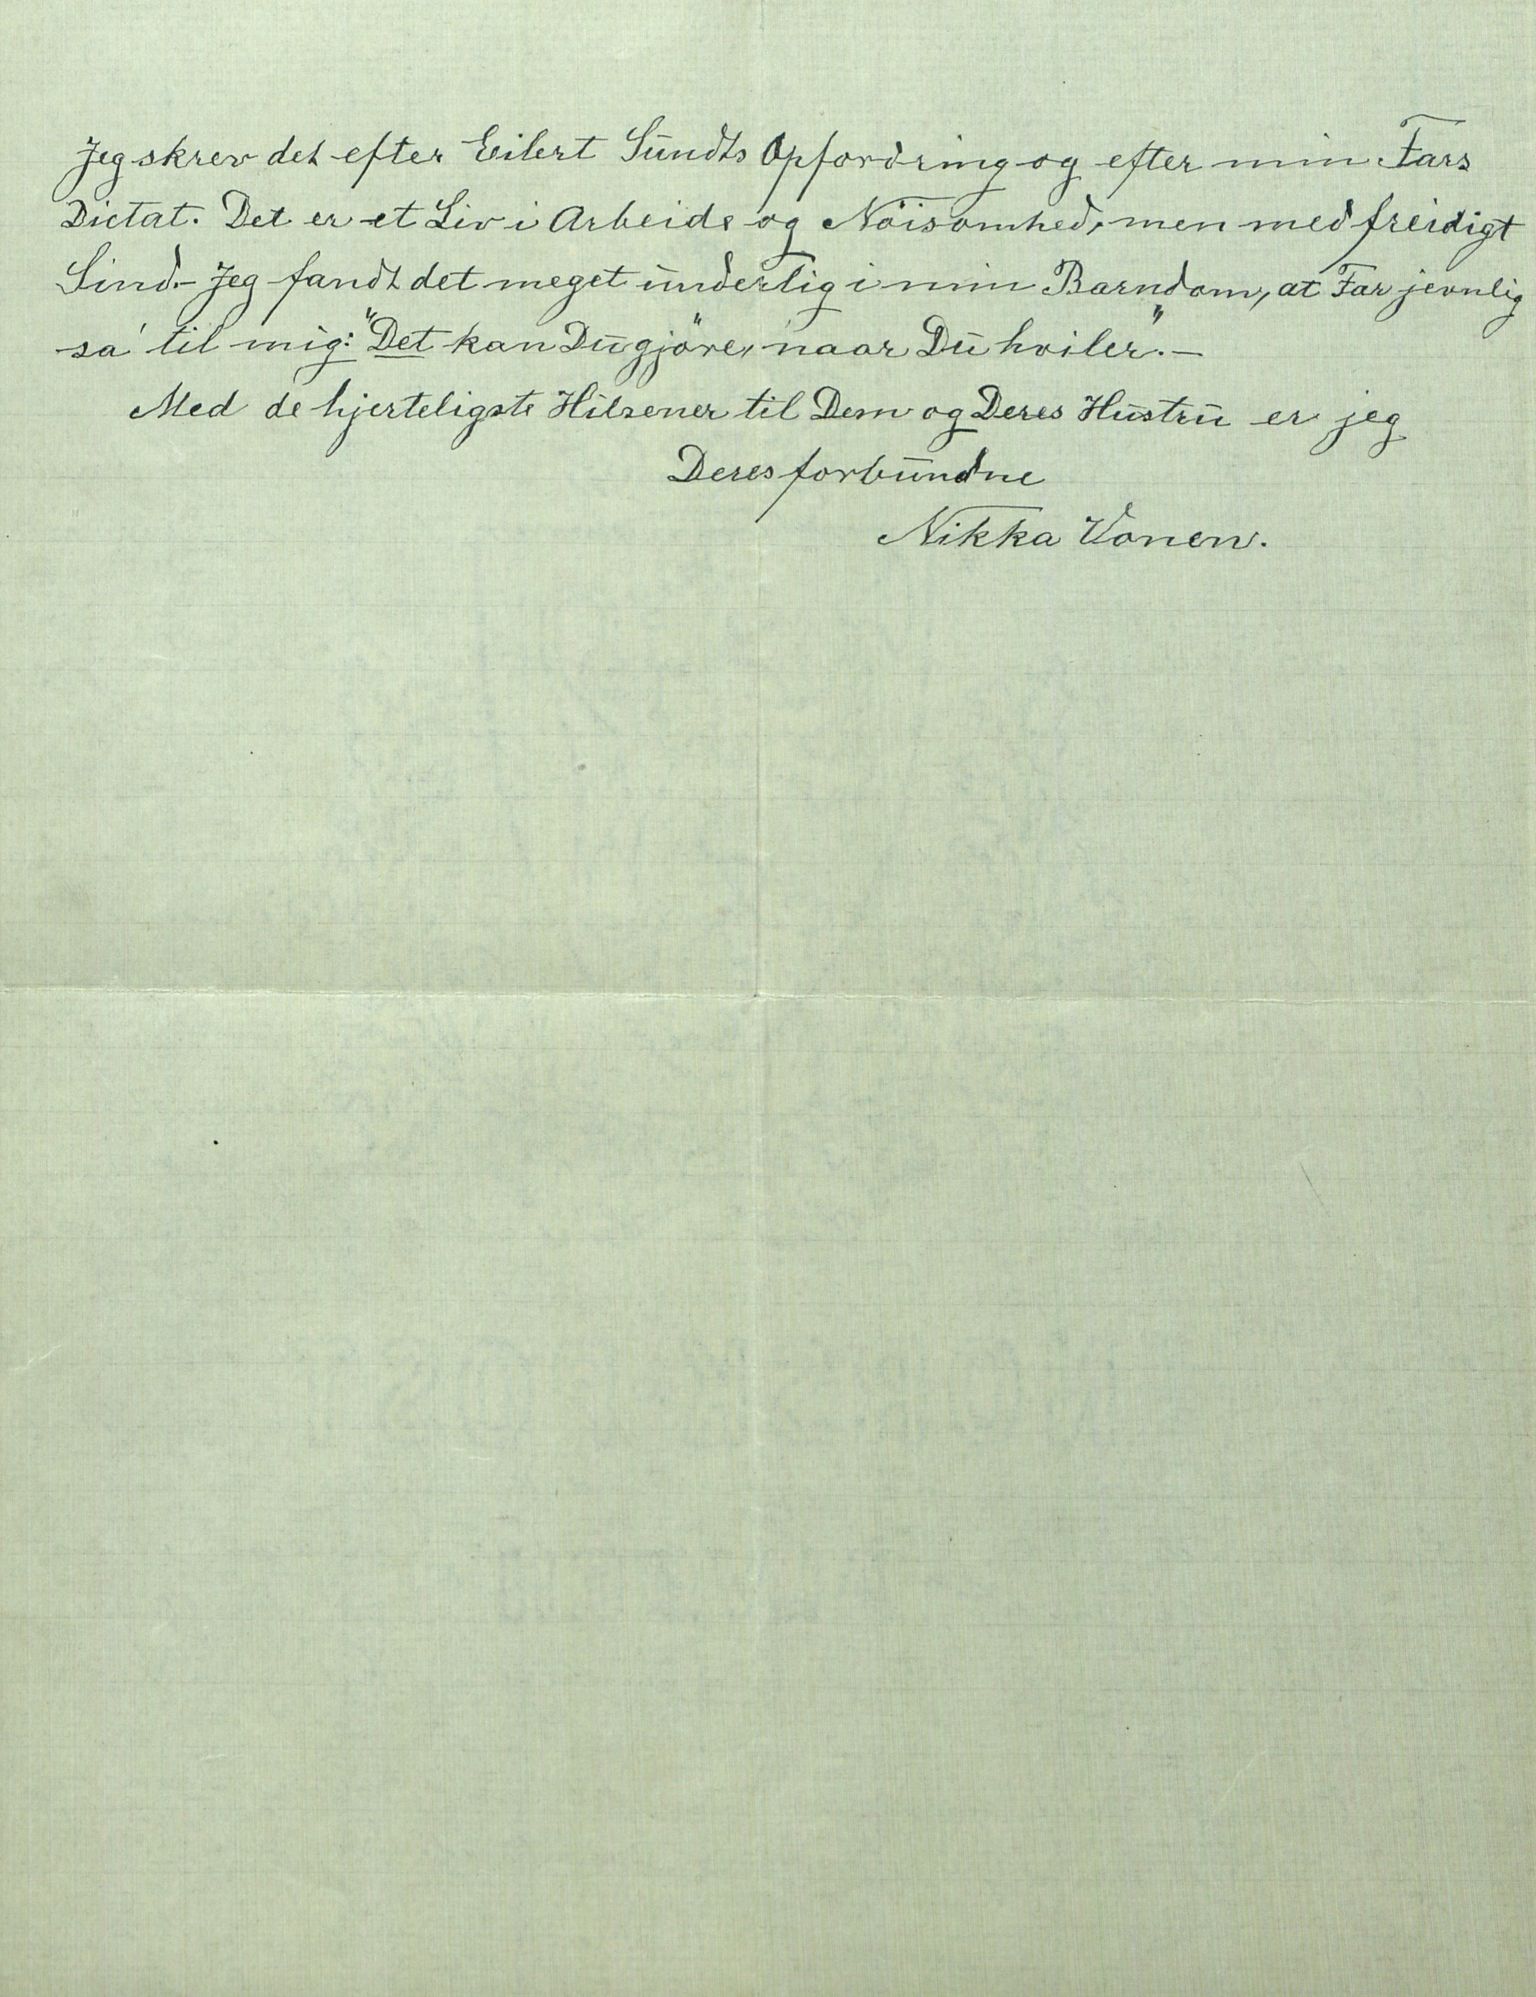 Jeg skrev det efter Eilert Sundts Opfordring og efter min Fars
Dictat. Det er et Liv i Arbeide og Nöisomhed, men med freidigt
Sind.- Jeg fandt det meget underlig i min Barndom, at Far jevnlig
sa' til mig: "Det kan Du gjöre, naar Du hviler".-
Med de hjerteligste Hilsener til Dem og Deres Hustru er jeg
Deres forbundne
Nikka Vonen.